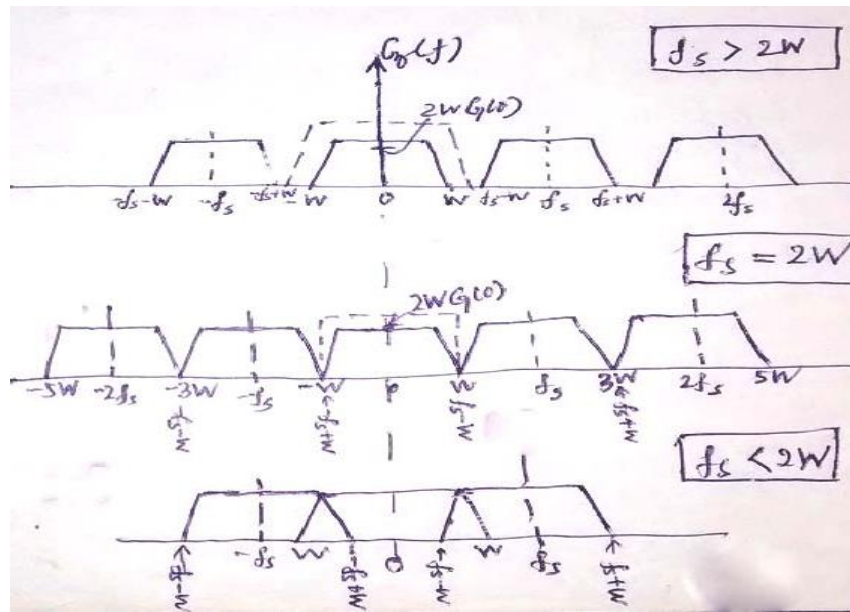 Gδ(f)
fs > 2W
2WG(0)
-fs-W -fs -fs+W -W 0 W fs-W fs fs+W 2fs
fs = 2W
2WG(0)
-5W -2fs -3W -fs -W 0 W fs 3W 2fs 5W
-fs-W -fs+W fs-W fs+W
fs < 2W
-fs W 0 W fs
-fs-W -fs+W fs-W fs+W